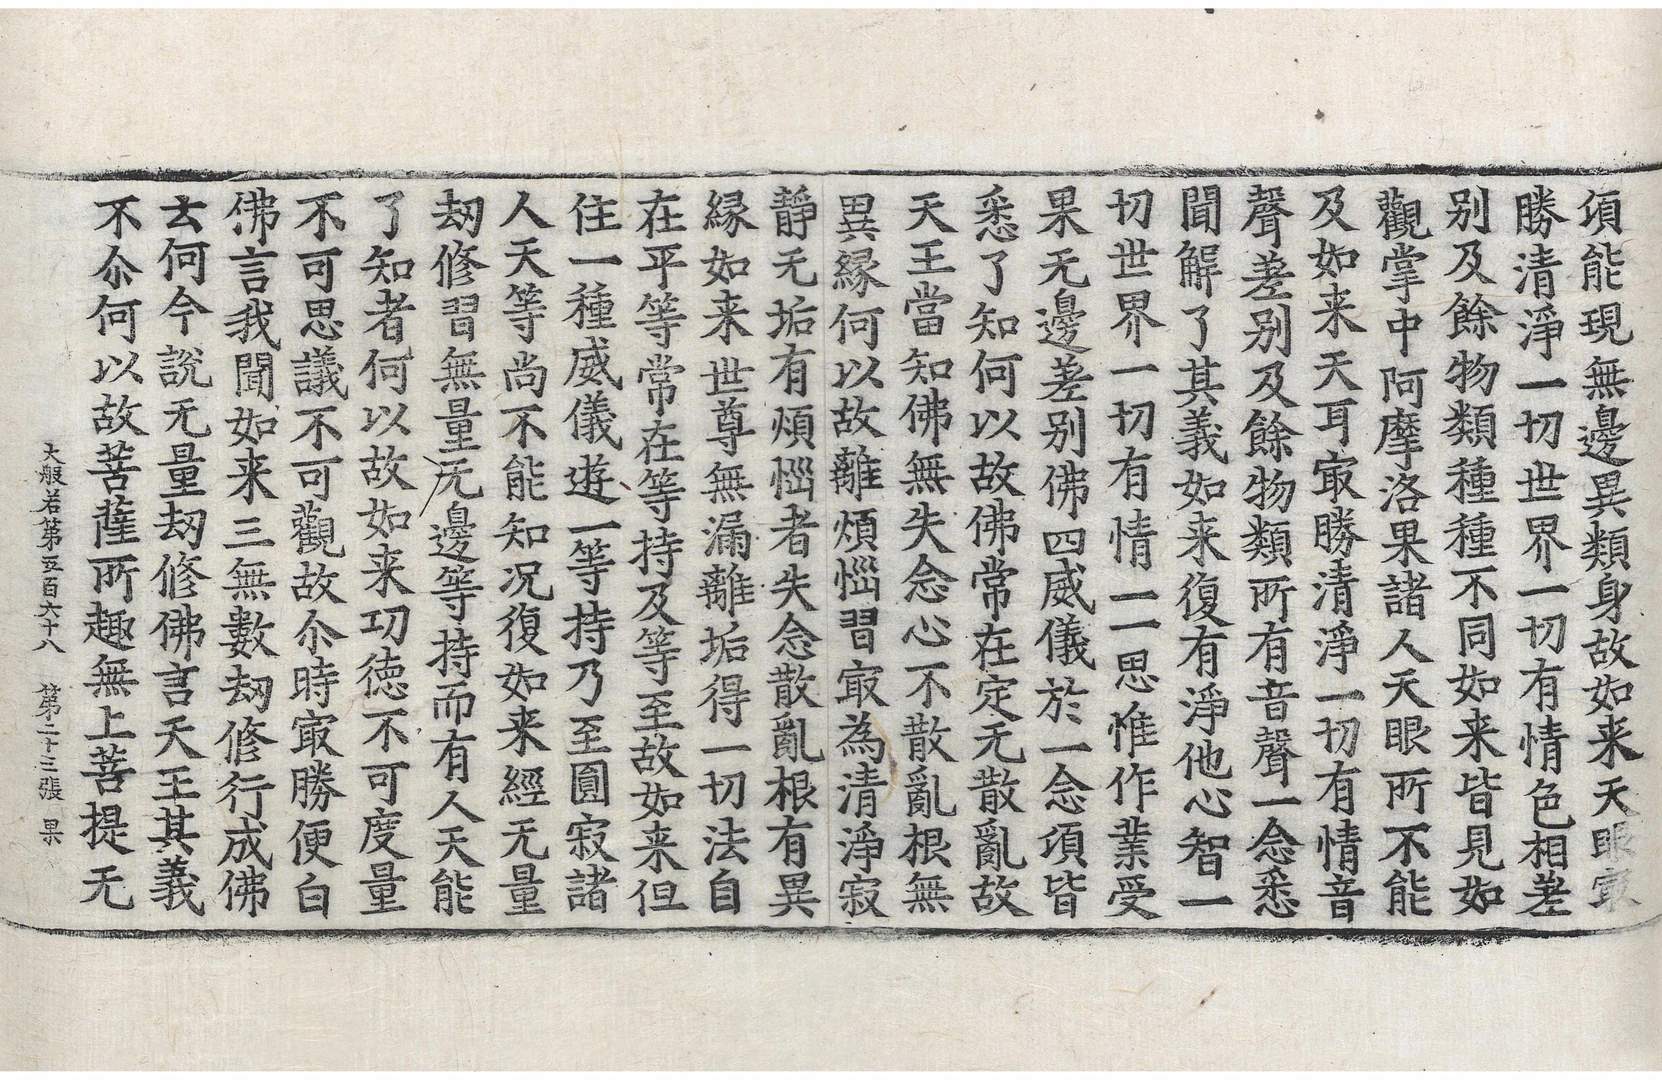 湏能現無邊異類身故如来天眼㝡
勝清淨一切世界一切有情色相差
别及餘物類種種不同如来皆見如
觀掌中阿摩洛果諸人天眼所不能
及如来天耳㝡勝清淨一切有情音
聲差别及餘物類所有音聲一念悉
聞解了其義如来復有淨他心智一
切世界一切有情一一思惟作業受
果无邊差别佛四威儀於一念湏皆
悉了知何以故佛常在定无散亂故
天王當知佛無失念心不散亂根無
異緣何以故離煩惱習㝡為清淨寂
靜无垢有煩惱者失念散亂根有異
緣如来世尊無漏離垢得一切法自
在平等常在等持及等至故如来但
住一種威儀遊一等持乃至圓寂諸
人天等尚不能知况復如来經无量
劫修習無量无邊等持而有人天能
了知者何以故如来功德不可度量
不可思議不可觀故尒時㝡勝便白
佛言我聞如来三無數劫修行成佛
云何今說无量劫修佛言天王其義
不尒何以故菩薩所趣無上菩提无
大般若第五百六十八 第二十三張 果